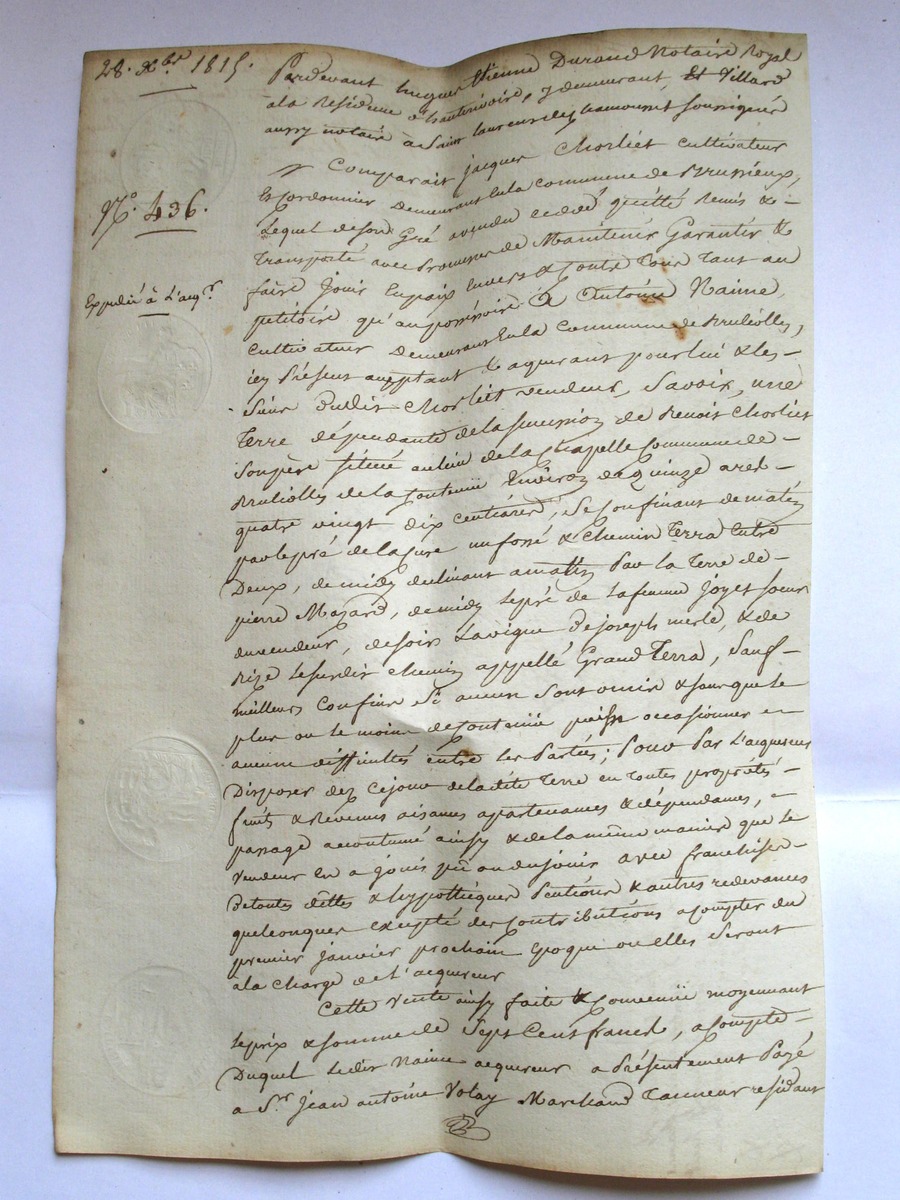 28. Xbre 1815.
Pardevant hugues Etienne Durand Notaire Royal
ala Residence d'hauterivoire, y demeurant Et Villard
aussy notaire à Saint laurens de chamousset soussignés
Comparait jacques Chorliet cultivateur
No. 436.
Et Cordonnier demeurant En la commune de Brussieux,
Lequel de son Gré a vendu ceddé quitté Remis &
transporté avec Promesse de Maintenir Garantir &
faire jouir En paix Envers & contre Tous tant au
Expedié à L'aqr.
petitoire qu'au possessoire A Antoine Naime
cultivateur demeurant En la commune de Brulliolles,
icy Présent acceptant & aquerant pour lui & les
Siens Dudit Chorliet vendeur, Savoir, une
Terre dépendante de la succession de Benoit Chorliet
Son père Située au lieu de la Chapelle Commune de
Brulliolles de la Contenüe Environ de quinze ares
quatre vingt dix centiares, se confinant de matin
par le pré de la cure un fossé & chemin Terra Entre
Deux, de midy declinant a matin Par la Terre de
pierre Mazard, de midy le pré de la femme joyet soeur
du vendeur, de soir La vigne de joseph merle, & de
bize le susdit chemin appellé Grand Terra, Sauf
meilleurs Confins Si aucun Sont omis & sans que le
plus ou le moins de Contenüe puisse occasionner
aucune difficultés entre les Parties; Pour Par L'aquereur
Disposer dez Ce jour de la dite Terre en toutes proprietés
fruits & Revenus aisances apartenances & dépendances,
passage accoutumé ainsy & de la même maniere que le
vendeur En a joui pû ou du jouir avec franchise
De toutes dettes & hypothèques Servis & autres redevances
quelconques excepté des Contributions a compter du
premier janvier prochain Epoque ou elles Seront
a la charge de l'acquereur
Cette Vente ainsy faite & Convenüe moyennant
Le prix & somme de Sept Cent francs, a compte
Duquel Ledit Naime acquereur a Présentement Payé
a Sr. jean antoine Volay Marchand Tanneur residant